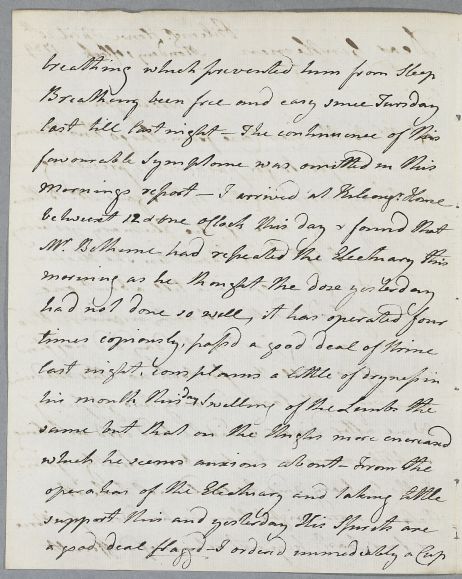 breathing which prevented him from Sleep
Breathing been free and easy since Tuesday
last till last night – The continuence of this
favourable Symptome was omitted in this
mornings report – I arrived at Home
betwixt 12 & one oClock this day & found that
Mr. Bethune had repeated the Electuary this
morning as he thought the dose yesterday
had not done so well, it has operated four
times copiously, pass'd a good deal of Urine
last night, complains a little of dryness in
his mouth this day, Swelling of the Limbs the
same but that on the thighs more encreased
which he seems anxious about – From the
operation of the Electuary and taking little
support this and yesterday His Spirits are
a good deal flagg'd – I ordered immediately a Cup